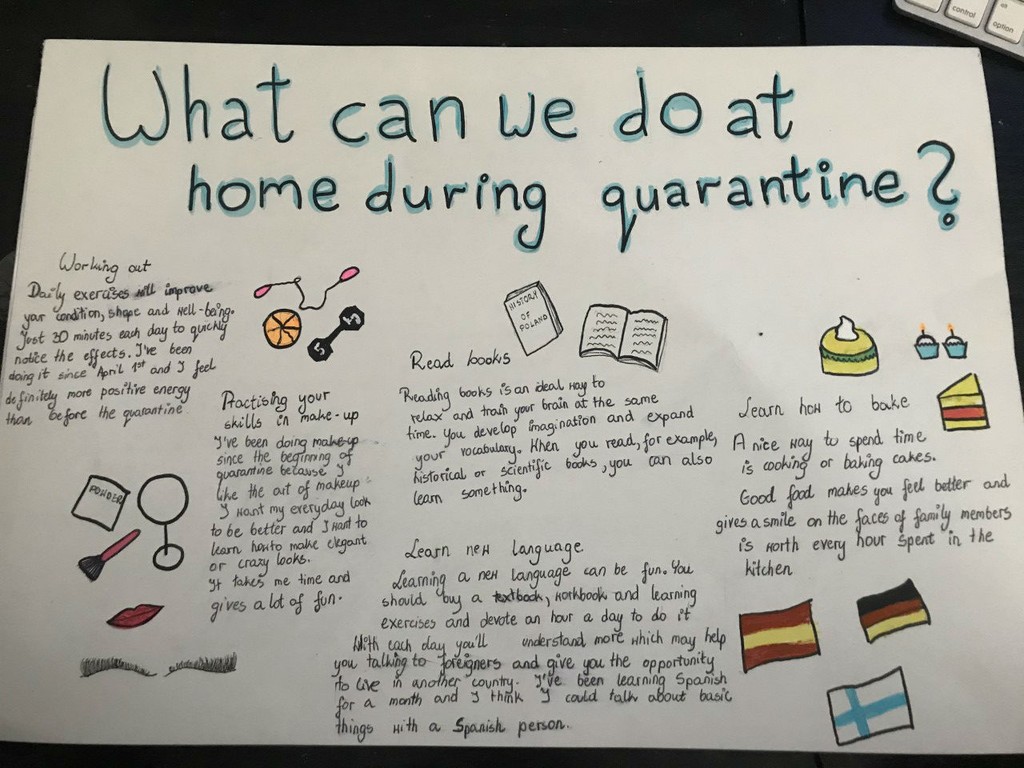 What can we do at
home during quarantine?
Working out
Daily exercises will improve
your condition, shape and well-being.
Just 30 minutes each day to quickly
notice the effects. I've been
doing it since April 1st and I feel
definitely more positive energy
than before the quarantine
Practising your
skills in make-up
I've been doing make-up
since the beginning of
quarantine because I
like the art of makeup
I want my everyday look
to be better and I want to
learn how to make elegant
or crazy looks.
It takes me time and
gives a lot of fun.
POWDER
5
5
HISTORY
OF
POLAND
Read books
Reading books is an ideal way to
relax and train your brain at the same
time. You develop imagination and expand
your vocabulary. When you read, for example,
historical or scientific books, you can also
learn something.
Learn new language
Learning a new language can be fun. You
should buy a textbook, workbook and learning
exercises and devote an hour a day to do it
With each day you'll understand more which may help
you talking to foreigners and give you the opportunity
to live in another country. I've been learning Spanish
for a month and I think I could talk about basic
things with a Spanish person.
Learn how to bake
A nice way to spend time
is cooking or baking cakes.
Good food makes you feel better and
gives a smile on the faces of family members
is worth every hour spent in the
kitchen
control
alt
option